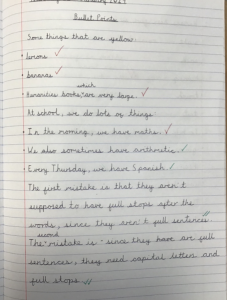 Bullet Points
Some things that are yellow:
• lemons
• bananas
which
• Humanities books^are very large.
At school, we do lots of things:
• In the morning, we have maths.
• We also sometimes have arithmetic.
• Every Thursday, we have Spanish.
The first mistake is that they aren't
supposed to have full stops after the
words, since they aren't full sentences.
second
The^mistake is : since they have are full
sentences, they need capital letters and
full stops.